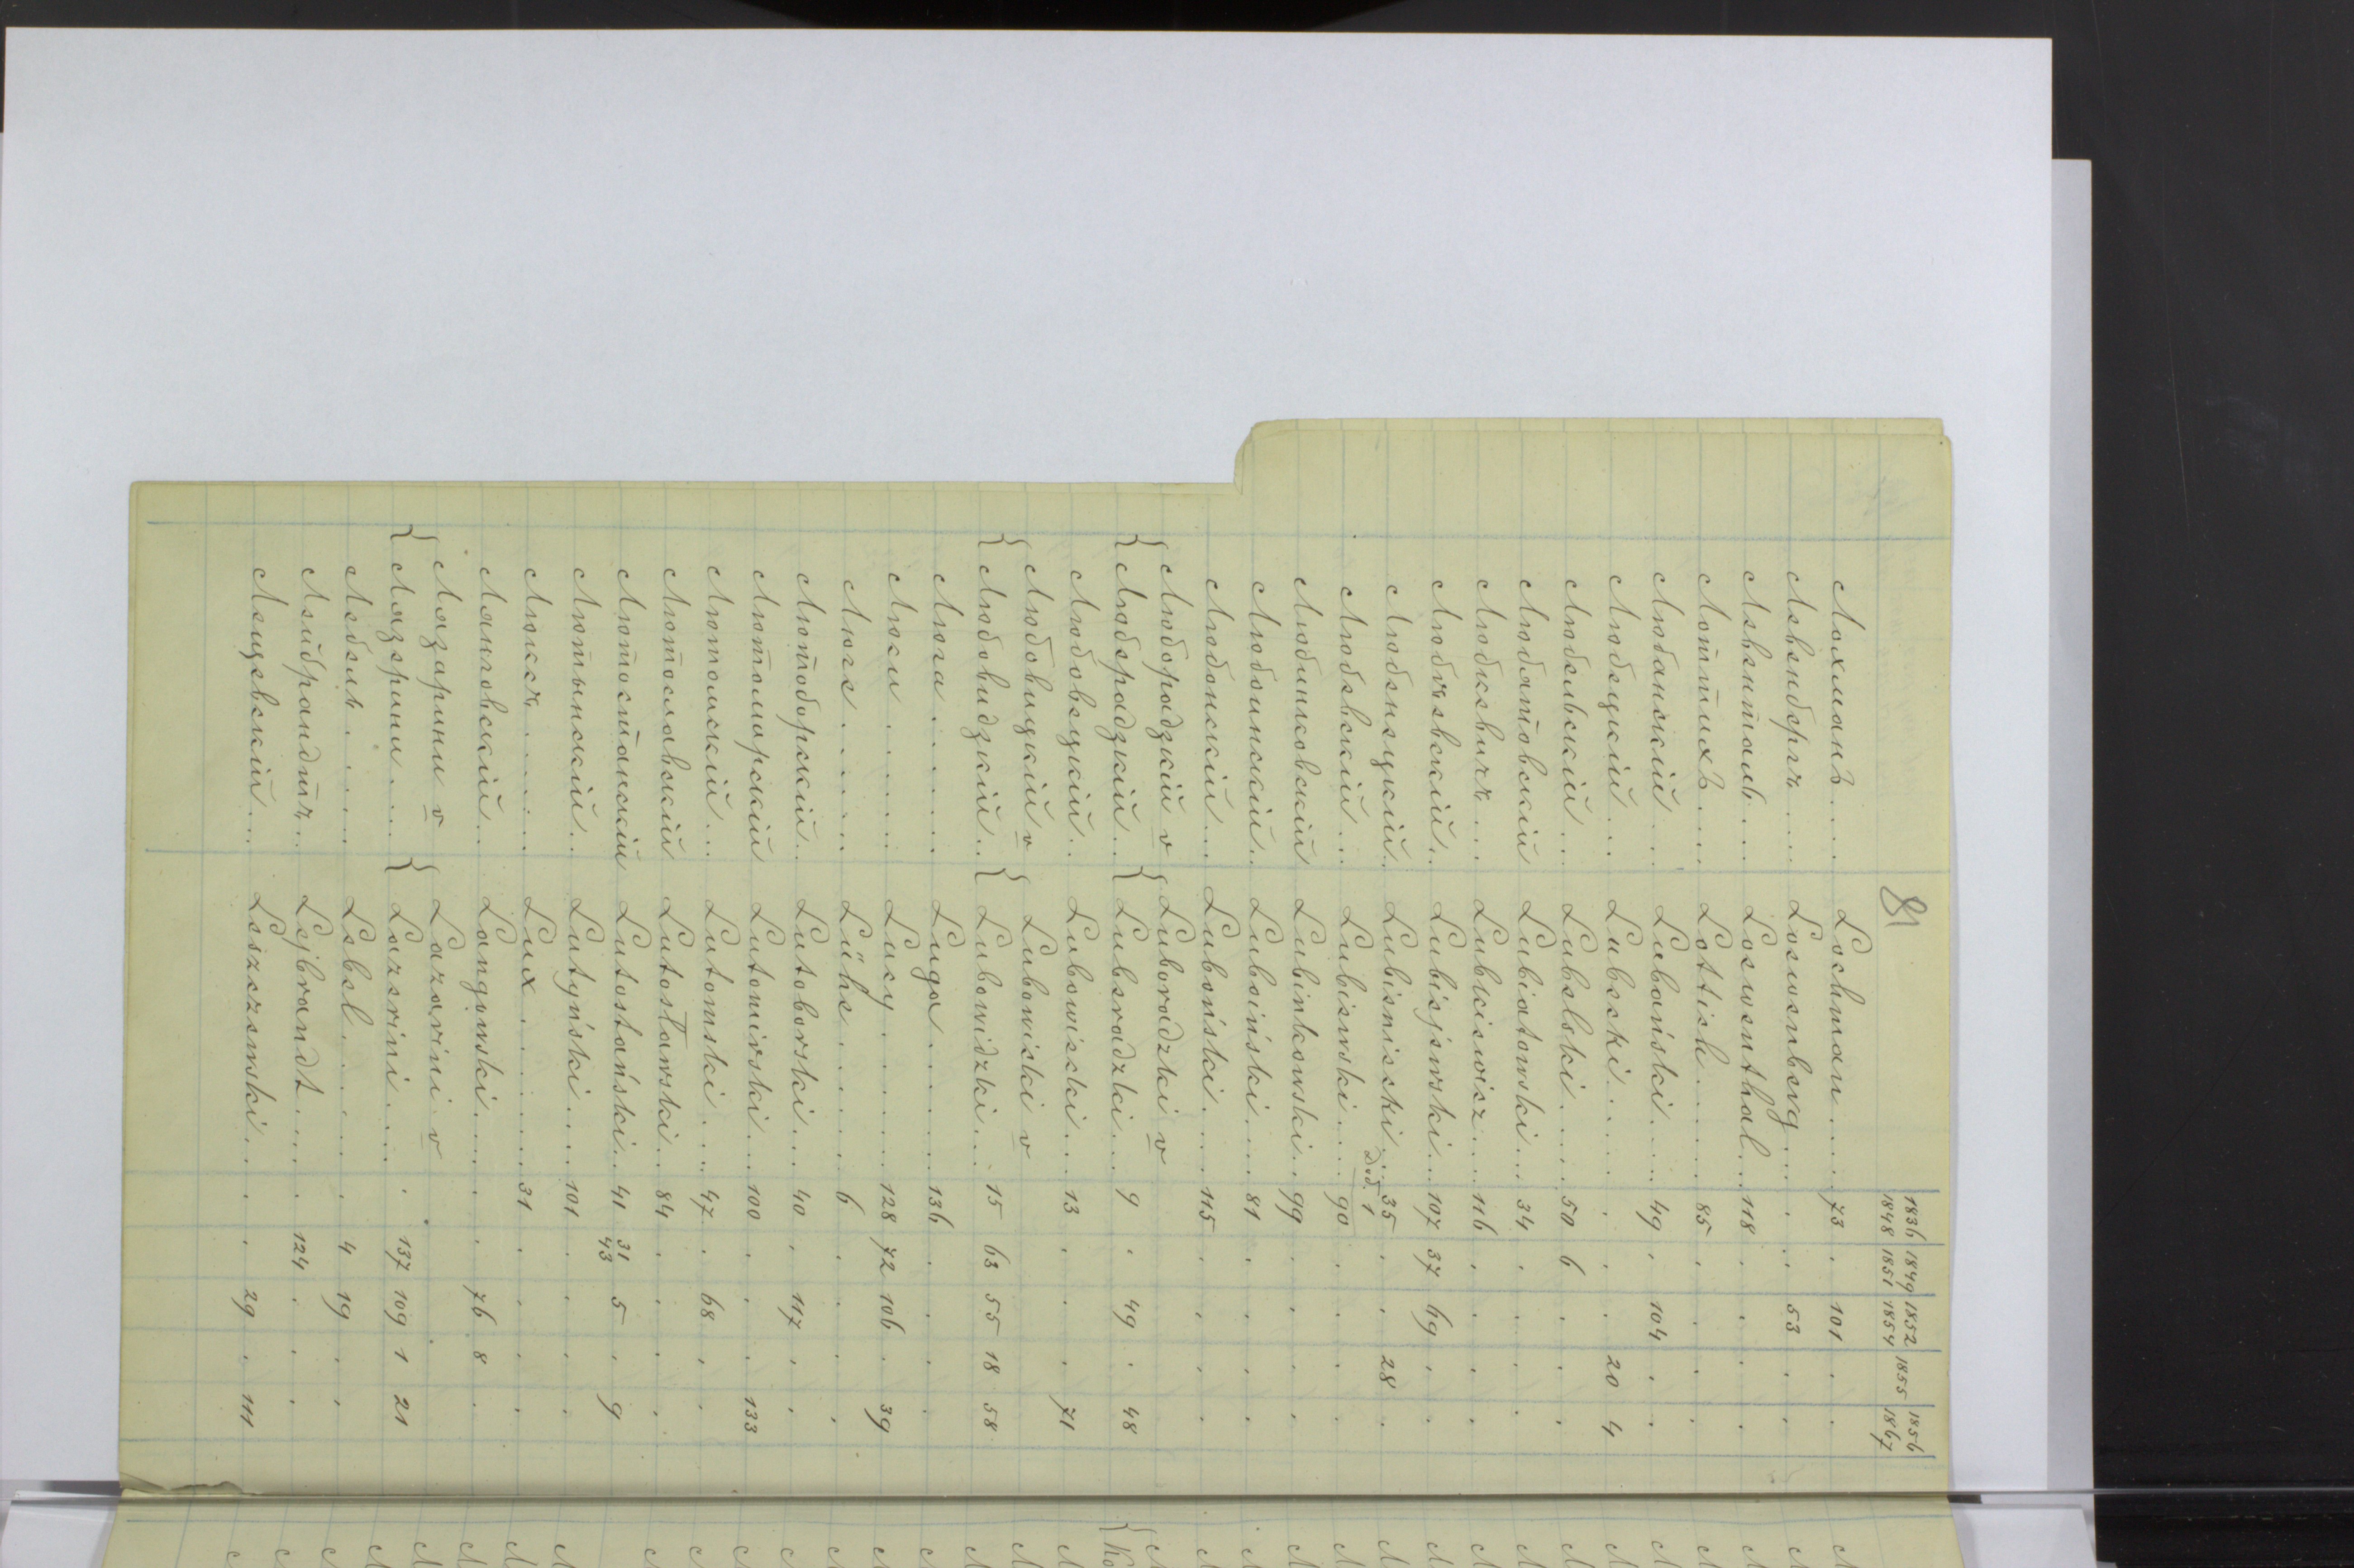 81
1836 1849 1852 1855 1856
1848 1851 1854 1867
Лохманъ .... Lochman ..... 73 . 101 . .
Левенбергъ .... Loewenberg ... . . 53 . .
Левенталь ... Loewenthal ... 118 . . . .
Лоттихъ .... Lottich ...... 85 . . . .
Любанскій ... Lubański ..... 49 . 104 . .
Любецкій ... Lubecki ..... . . . 20 4
Любельскій ... Lubelski ..... 50 6 . . .
Любятовскій Lubiatowski ... 34 . . . .
Любкевичъ ... Lubkiewicz .... 116 . . . .
Любѣевскій .. Lubiejewski ... 107 37 69 . .
Любенецкій .. Lubieniecki ... 35 . . 28 .
Dod. 1
Любевскій ... Lubiewski .... 90 . . . .
Любинковскій Lubinkowski .. 99 . . . .
Любоинскій .. Luboiński .... 81 . . . .
Любонскій ... Luboński .... 115 . . . .
{ Люборадзкій v { Luboradzki v
{ Люберадзкій .. { Lubsradzki ... 9 . 49 . 48
Любовецкій .. Lubowiecki ... 13 . . . 71
{ Любовицкій v { Lubowicki v
{ Любовидзкій .. { Lubowidzki ... 15 63 55 18 58
Люга ...... Luga ....... 136 . . . .
Люси ...... Lucy ....... 128 72 106 . 39
Люге ...... Lühe ....... 6 . . . .
Лютоборскій .. Lutoborski ... 40 . 117 . .
Лютомірскій Lutomirski .... 100 . . . 133
Лютомскій ... Lutomski .... 47 . 68 . .
Лютославскій Lutosławski ... 84 . . . .
Лютостанскій Lutostański .. 41 31 5 . 9
43
Лютынскій .. Lutyński .... 101 . . . .
Люксъ ...... Lux ....... 31 . . . .
Лянговскій .. Langowski .... . . 76 8 .
{ Лазарини v { Lazarini v
{ Лазерини .... { Lazerini .... . 137 109 1 21
Лебель ...... Lebel ....... . 4 19 . .
Лейбрандтъ .. Lejbrandt .... . 124 . . .
Лещевскій ... Leszczewski ... . . 29 . 111